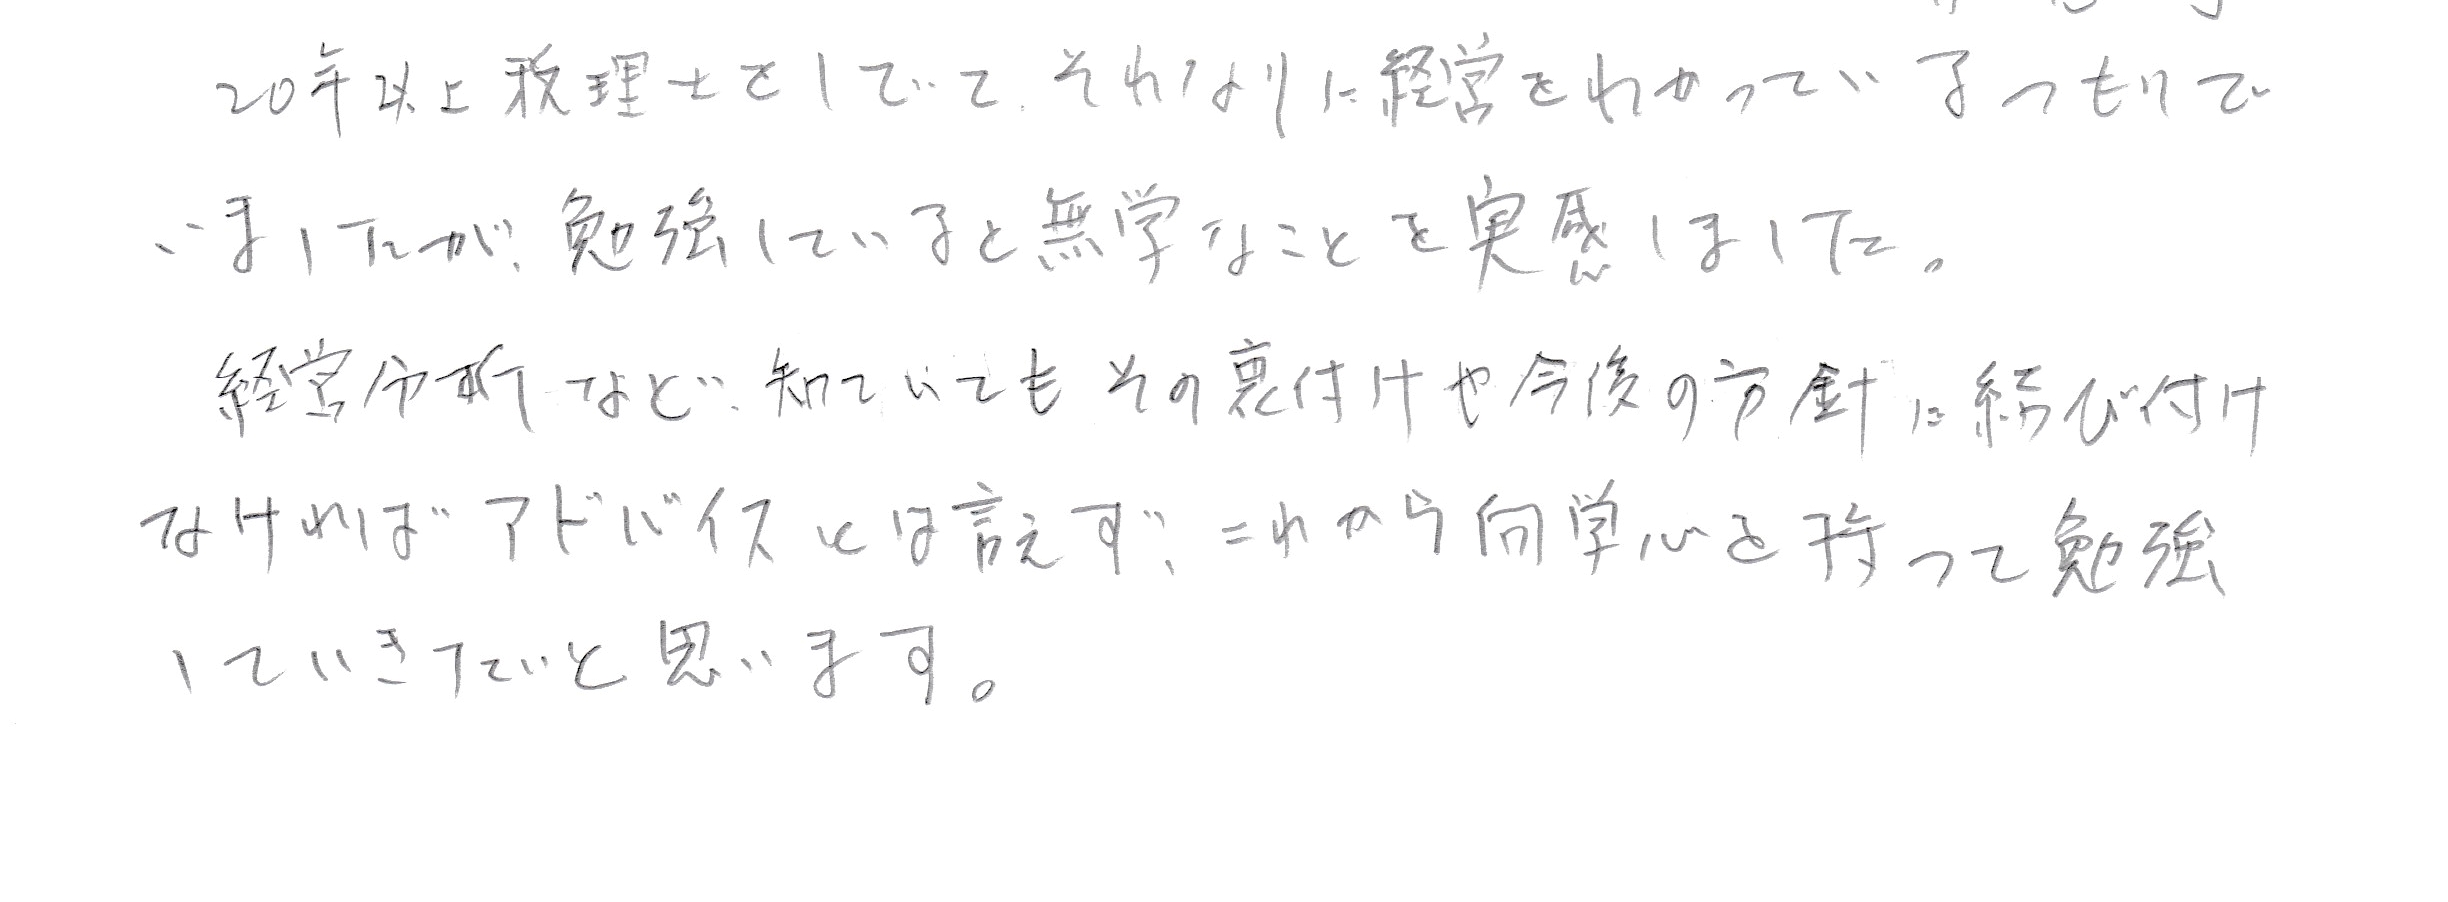 20年以上税理士をしていて、それなりに経営をわかっているつもりで
いましたが、勉強していると無学なことを実感しました。
経営分析など、知っていてもその裏付けや今後の方針に結び付け
なければアドバイスとは言えず、これから向学心を持って勉強
していきたいと思います。